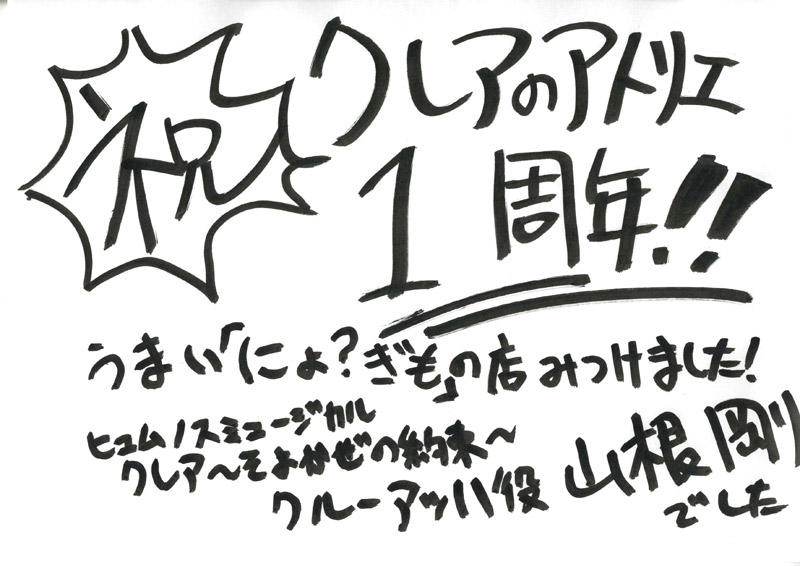 祝
クレアのアトリエ
1周年!!
うまい「にょ?ぎも」の店みつけました!
ヒュムノスミュージカル
クレア～そよかぜの約束～
クルーアッハ役 山根 剛
でした